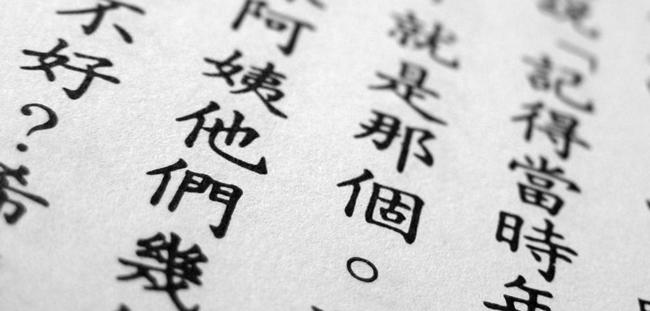 說「記得當時年
就是那個。
阿姨他們幾
不好？希